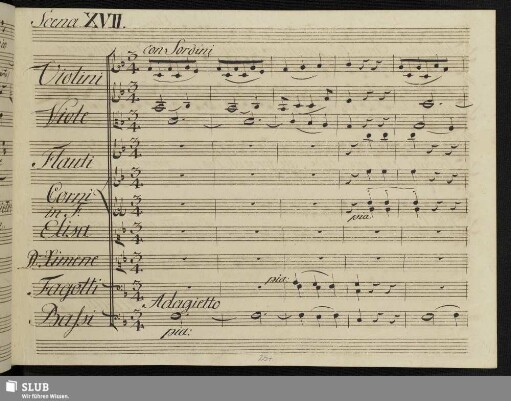 Scena XVII.
con Sordini
Violini
Viole
Flauti
Corni
in F.
Elisa
D. Ximene
pia:
Fagotti
pia:
Adagietto
Bassi
pia:
SLUB
Wir führen Wissen.